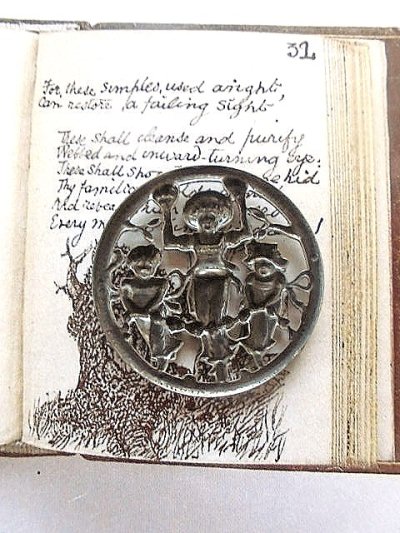 31
For these simples, used aright,
Can restore a failing sight
These shall cleanse and purify
Webbed and inward-turning eye:
These shall sho hid
Thy famili
And revea
Every m !